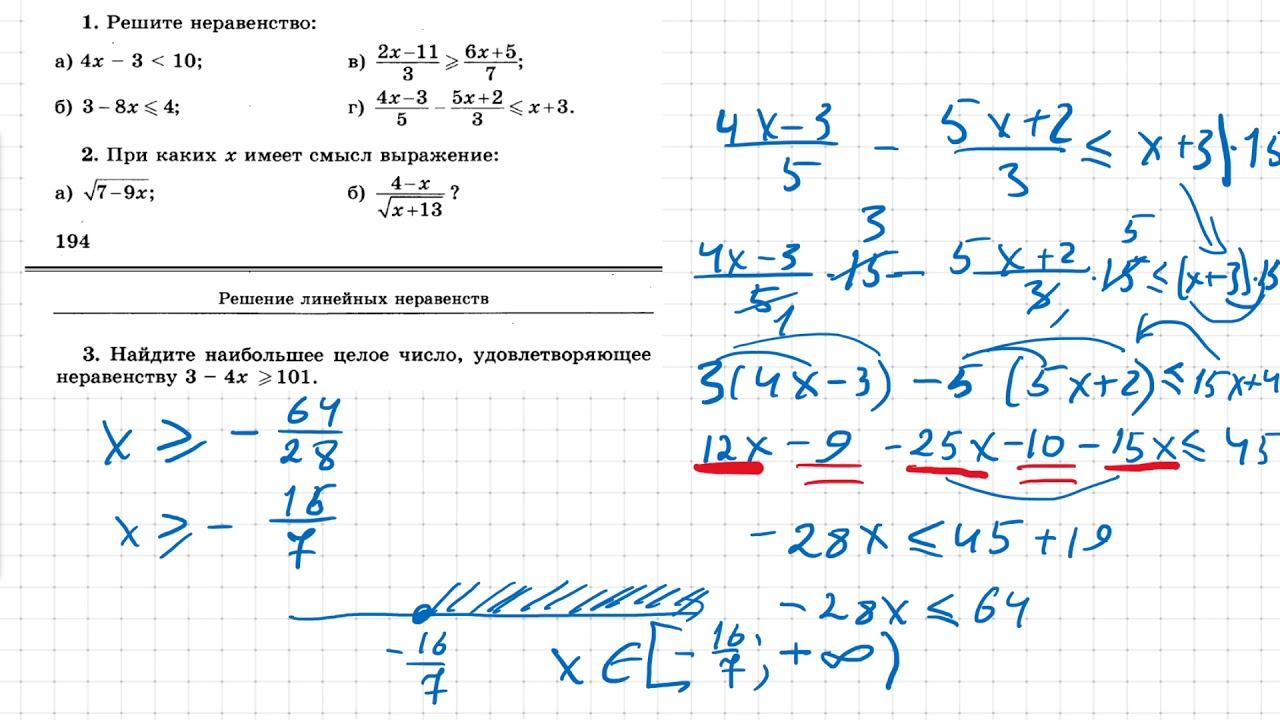 1. Решите неравенство:
а) 4x − 3 < 10; в) (2x−11)/3 ⩾ (6x+5)/7;
б) 3 − 8x ⩽ 4; г) (4x−3)/5 − (5x+2)/3 ⩽ x+3.
2. При каких x имеет смысл выражение:
а) √(7−9x); б) (4−x)/√(x+13) ?
194
Решение линейных неравенств
3. Найдите наибольшее целое число, удовлетворяющее
неравенству 3 − 4x ⩾ 101.
x ⩾ − 64/28
x ⩾ − 16/7
− 16/7
x ∈ [− 16/7; +∞)
(4x−3)/5 − (5x+2)/3 ≤ x+3 | ·15
3 5
(4x−3)/5 ·15 − (5x+2)/3 ·15 ≤ (x+3)·15
1 1
3(4x−3) −5(5x+2) ≤ 15x+4
12x −9 −25x −10 −15x ≤ 45
−28x ≤ 45 + 19
−28x ≤ 64